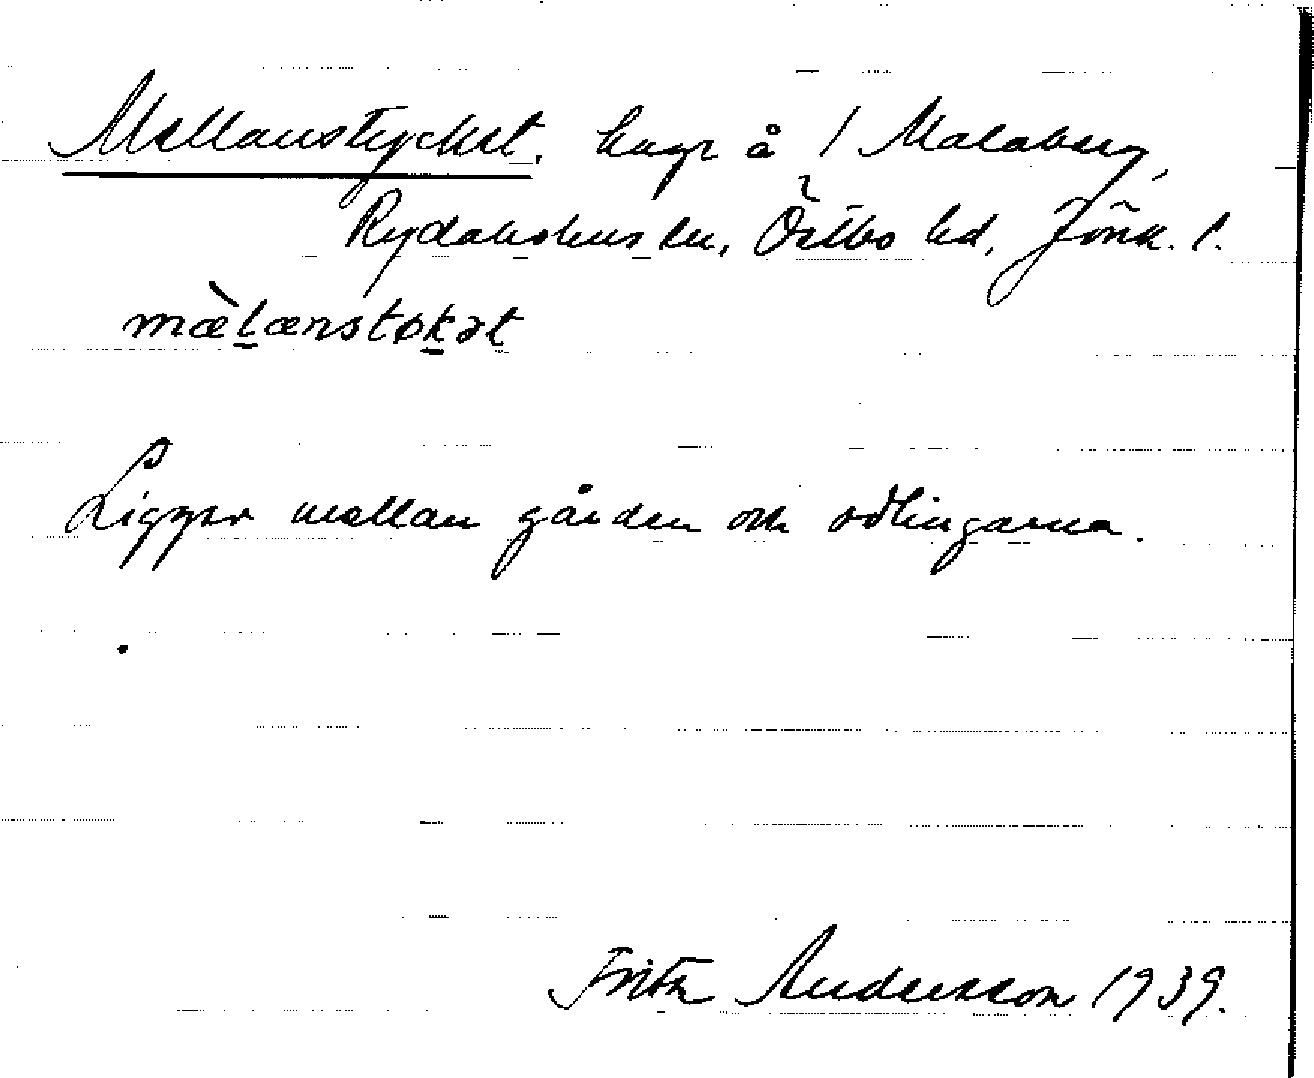 Mellanstycket, hage å 1 Malaberg,
Rydaholms sn, Östbo hd, Jönk. l.
mæ̀l̠ænstøk̠ət
Ligger mellan gården och odlingarna.
Frith Andersson 1939.